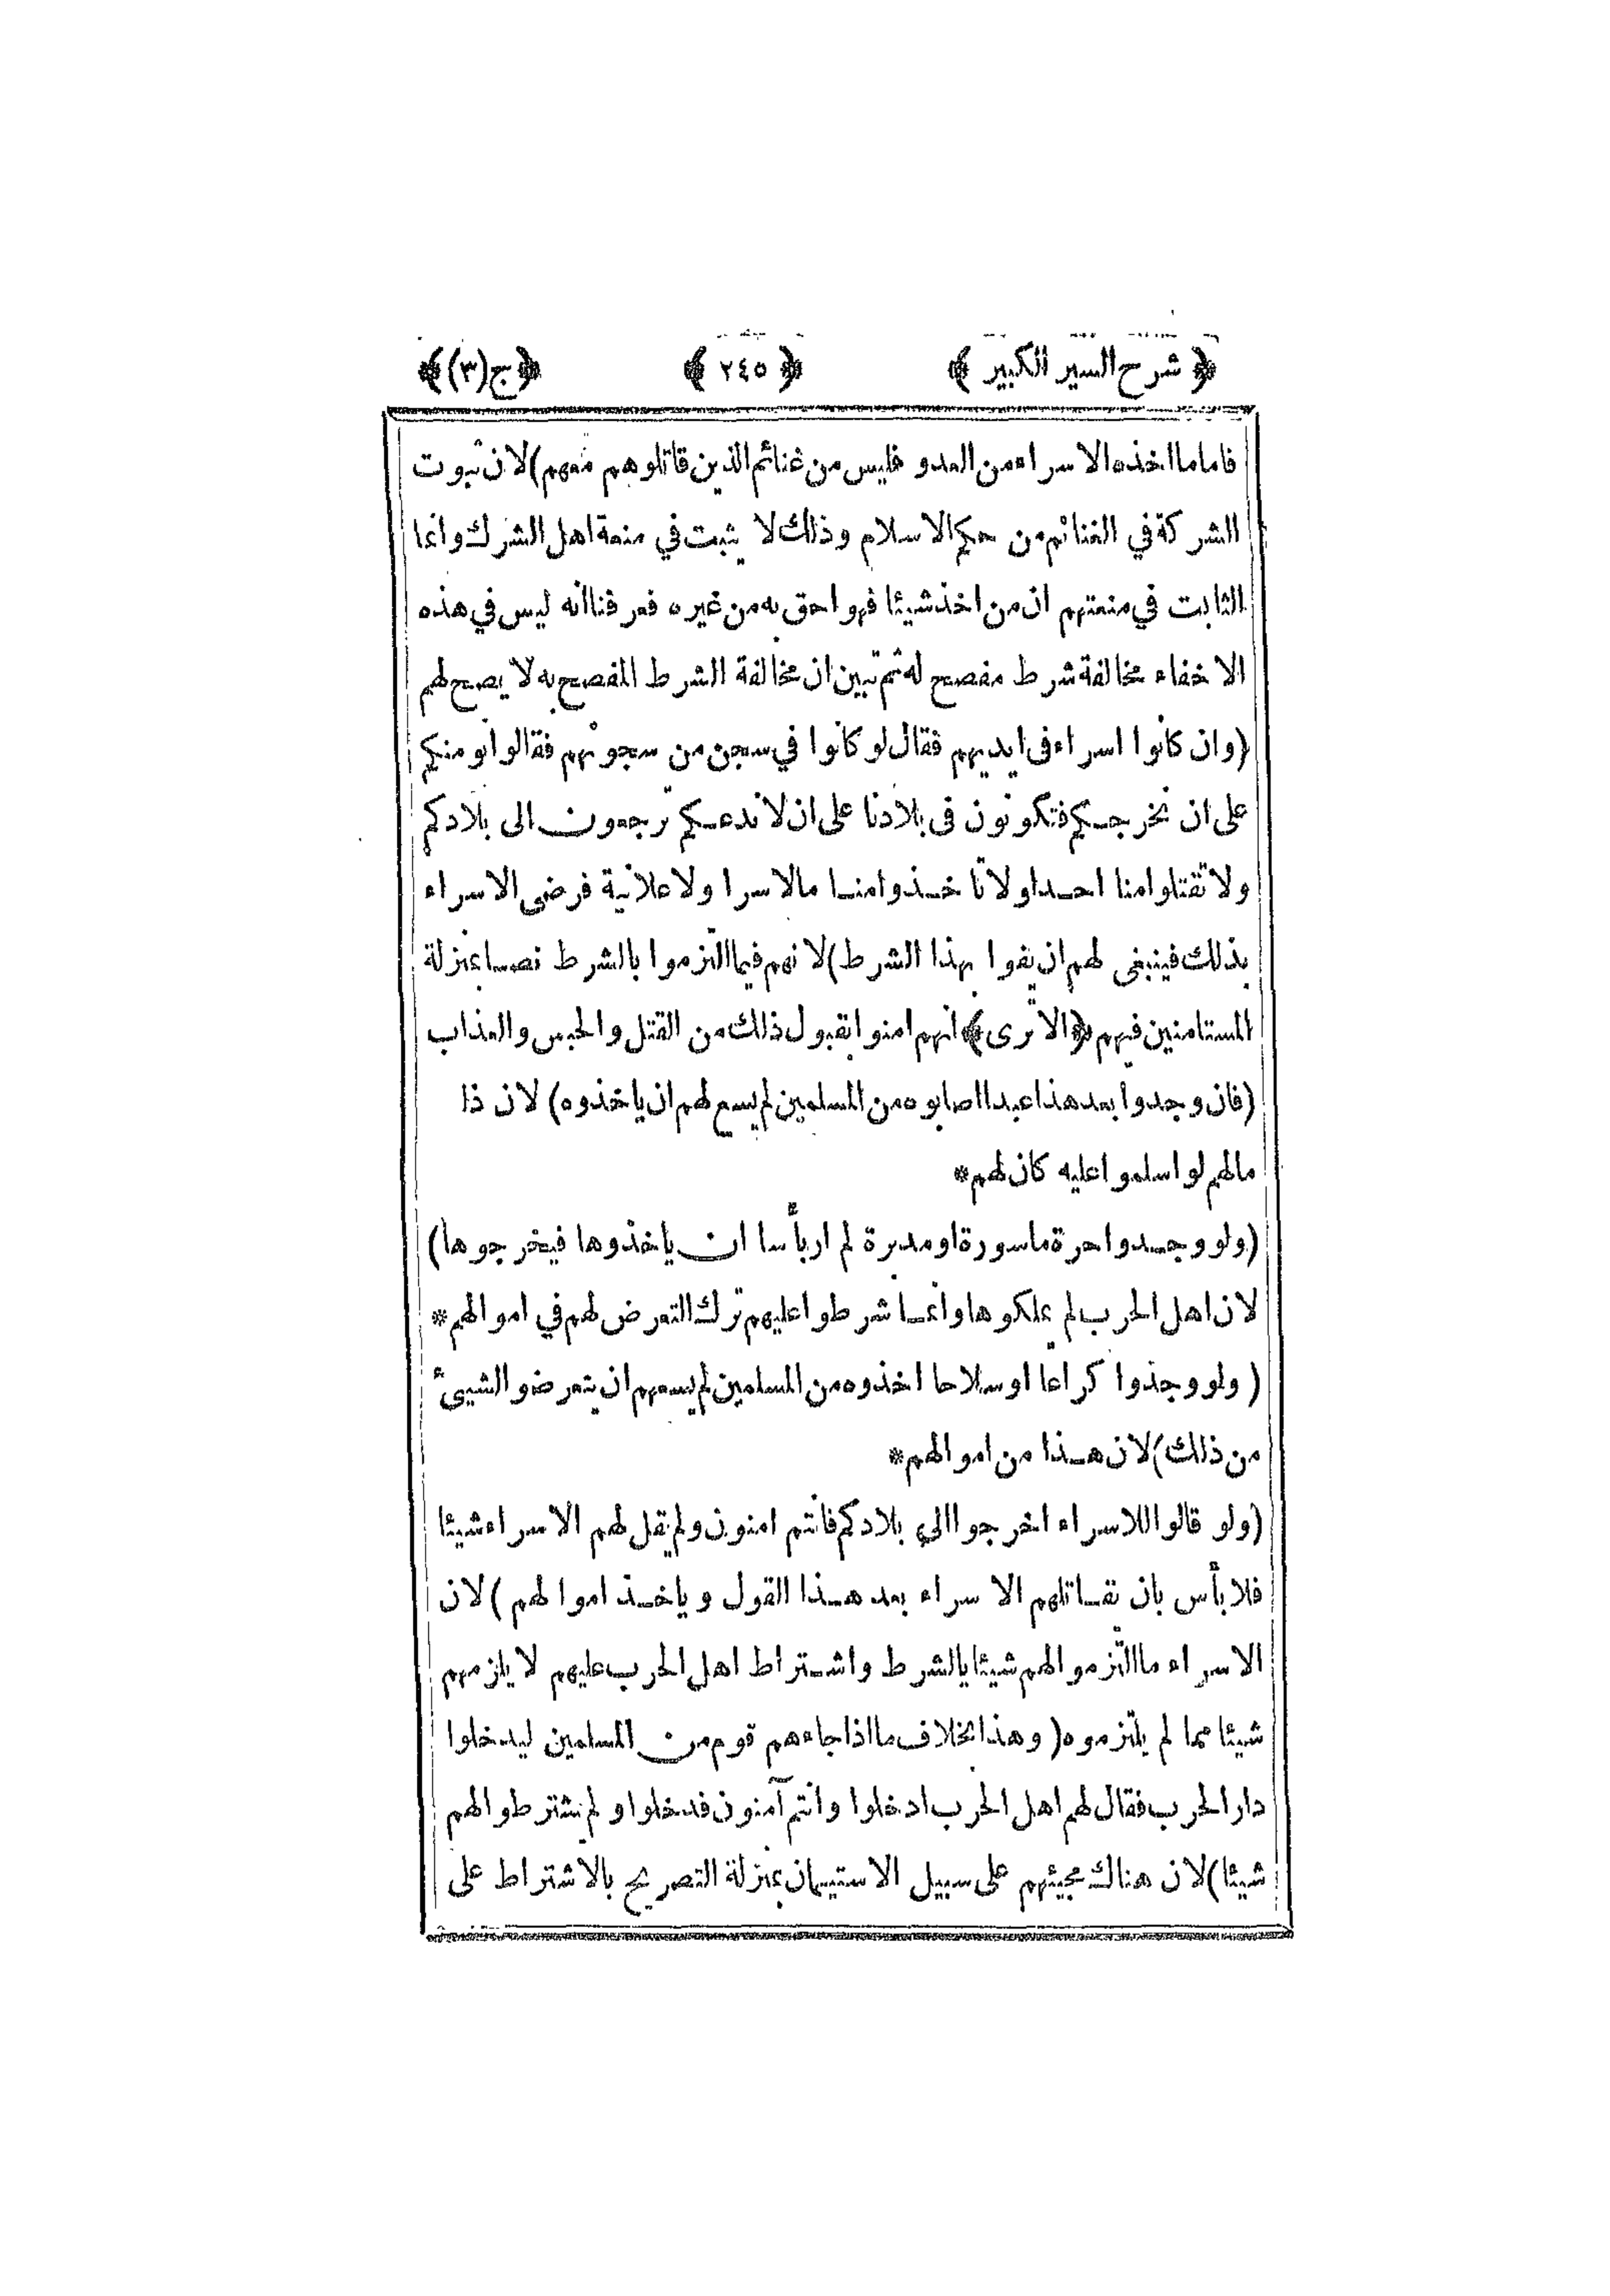 ﴿ شرح السير الكبير ﴾ ﴿ ٢٤٥ ﴾ ﴿ج(٣)﴾
فاما ما اخذه الاسراء من العدو فليس من غنائم الذين قاتلوهم معهم)لان ثبوت
الشركة في الغنائم من حكم الاسلام وذلك لا يثبت في منعة اهل الشرك وانما
الثابت في منعتهم ان من اخذ شيئا فهو احق به من غيره فعرفنا انه ليس في هذه
الاخفاء مخالفة شرط مفصح له ثم تبين ان مخالفة الشرط المفصح به لا يصح لهم
(وان كانوا اسراء فى ايديهم فقال لو كانوا في سجن من سجونهم فقالوا نومنكم
على ان نخرجكم فتكونون فى بلادنا على ان لا ندعكم ترجعون الى بلادكم
ولا تقتلوا منا احدا ولا تاخذوا منا مالا سرا ولا علانية فرضى الاسراء
بذلك فينبغى لهم ان يفوا بهذا الشرط)لانهم فيما التزموا بالشرط نصا بمنزلة
المستامنين فيهم ﴿الا ترى﴾ انهم امنوا بقبول ذلك من القتل والحبس والعذاب
(فان وجدوا بعد هذا عبدا اصابوه من المسلمين لم يسع لهم ان ياخذوه) لان ذا
مالهم لو اسلموا عليه كان لهم*
(ولو وجدوا حرة ماسورة او مدبرة لم ار بأسا ان ياخذوها فيخرجوها)
لان اهل الحرب لم يملكوها وانما شرطوا عليهم ترك التعرض لهم في اموالهم*
( ولو وجدوا كراعا او سلاحا اخذوه من المسلمين لم يسعهم ان يتعرضوا لشيئ
من ذلك)لان هذا من اموالهم*
(ولو قالوا للاسراء اخرجوا الي بلادكم فانتم امنون ولم يقل لهم الاسراء شيئا
فلا بأس بان تقاتلهم الاسراء بعد هذا القول وياخذ اموالهم )لان
الاسراء ما التزموا لهم شيئا بالشرط واشتراط اهل الحرب عليهم لا يلزمهم
شيئا مما لم يلتزموه( وهذا بخلاف ما اذا جاءهم قوم من المسلمين ليدخلوا
دار الحرب فقال لهم اهل الحرب ادخلوا وانتم آمنون فدخلوا ولم يشترطوا لهم
شيئا)لان هناك مجيئهم على سبيل الاستيمان بمنزلة التصريح بالاشتراط على